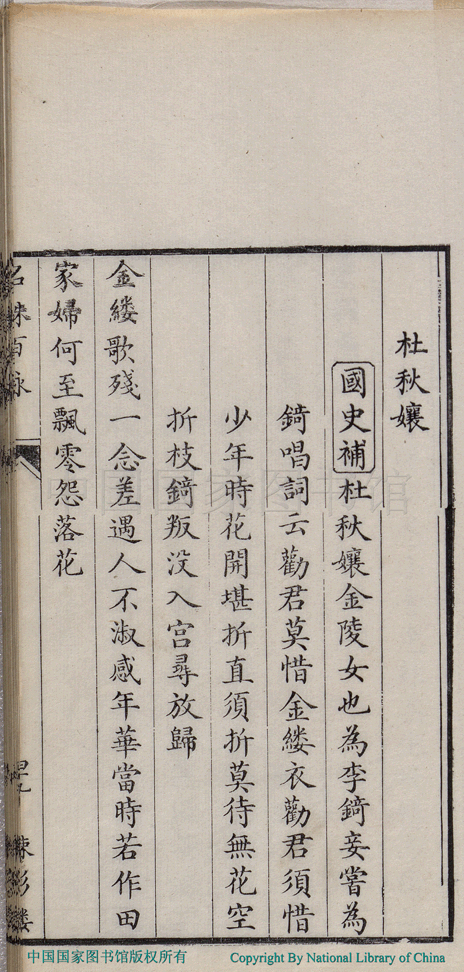 杜秋孃
國史補杜秋孃金陵女也為李錡妾嘗為
錡唱詞云勸君莫惜金縷衣勸君須惜
少年時花開堪折直須折莫待無花空
折枝錡叛没入宫尋放歸
金縷歌殘一念差遇人不淑感年華當時若作田
家婦何至飄零怨落花
名姝百詠
中国国家图书馆
中国国家图书馆版权所有
Copyright By National Library of China